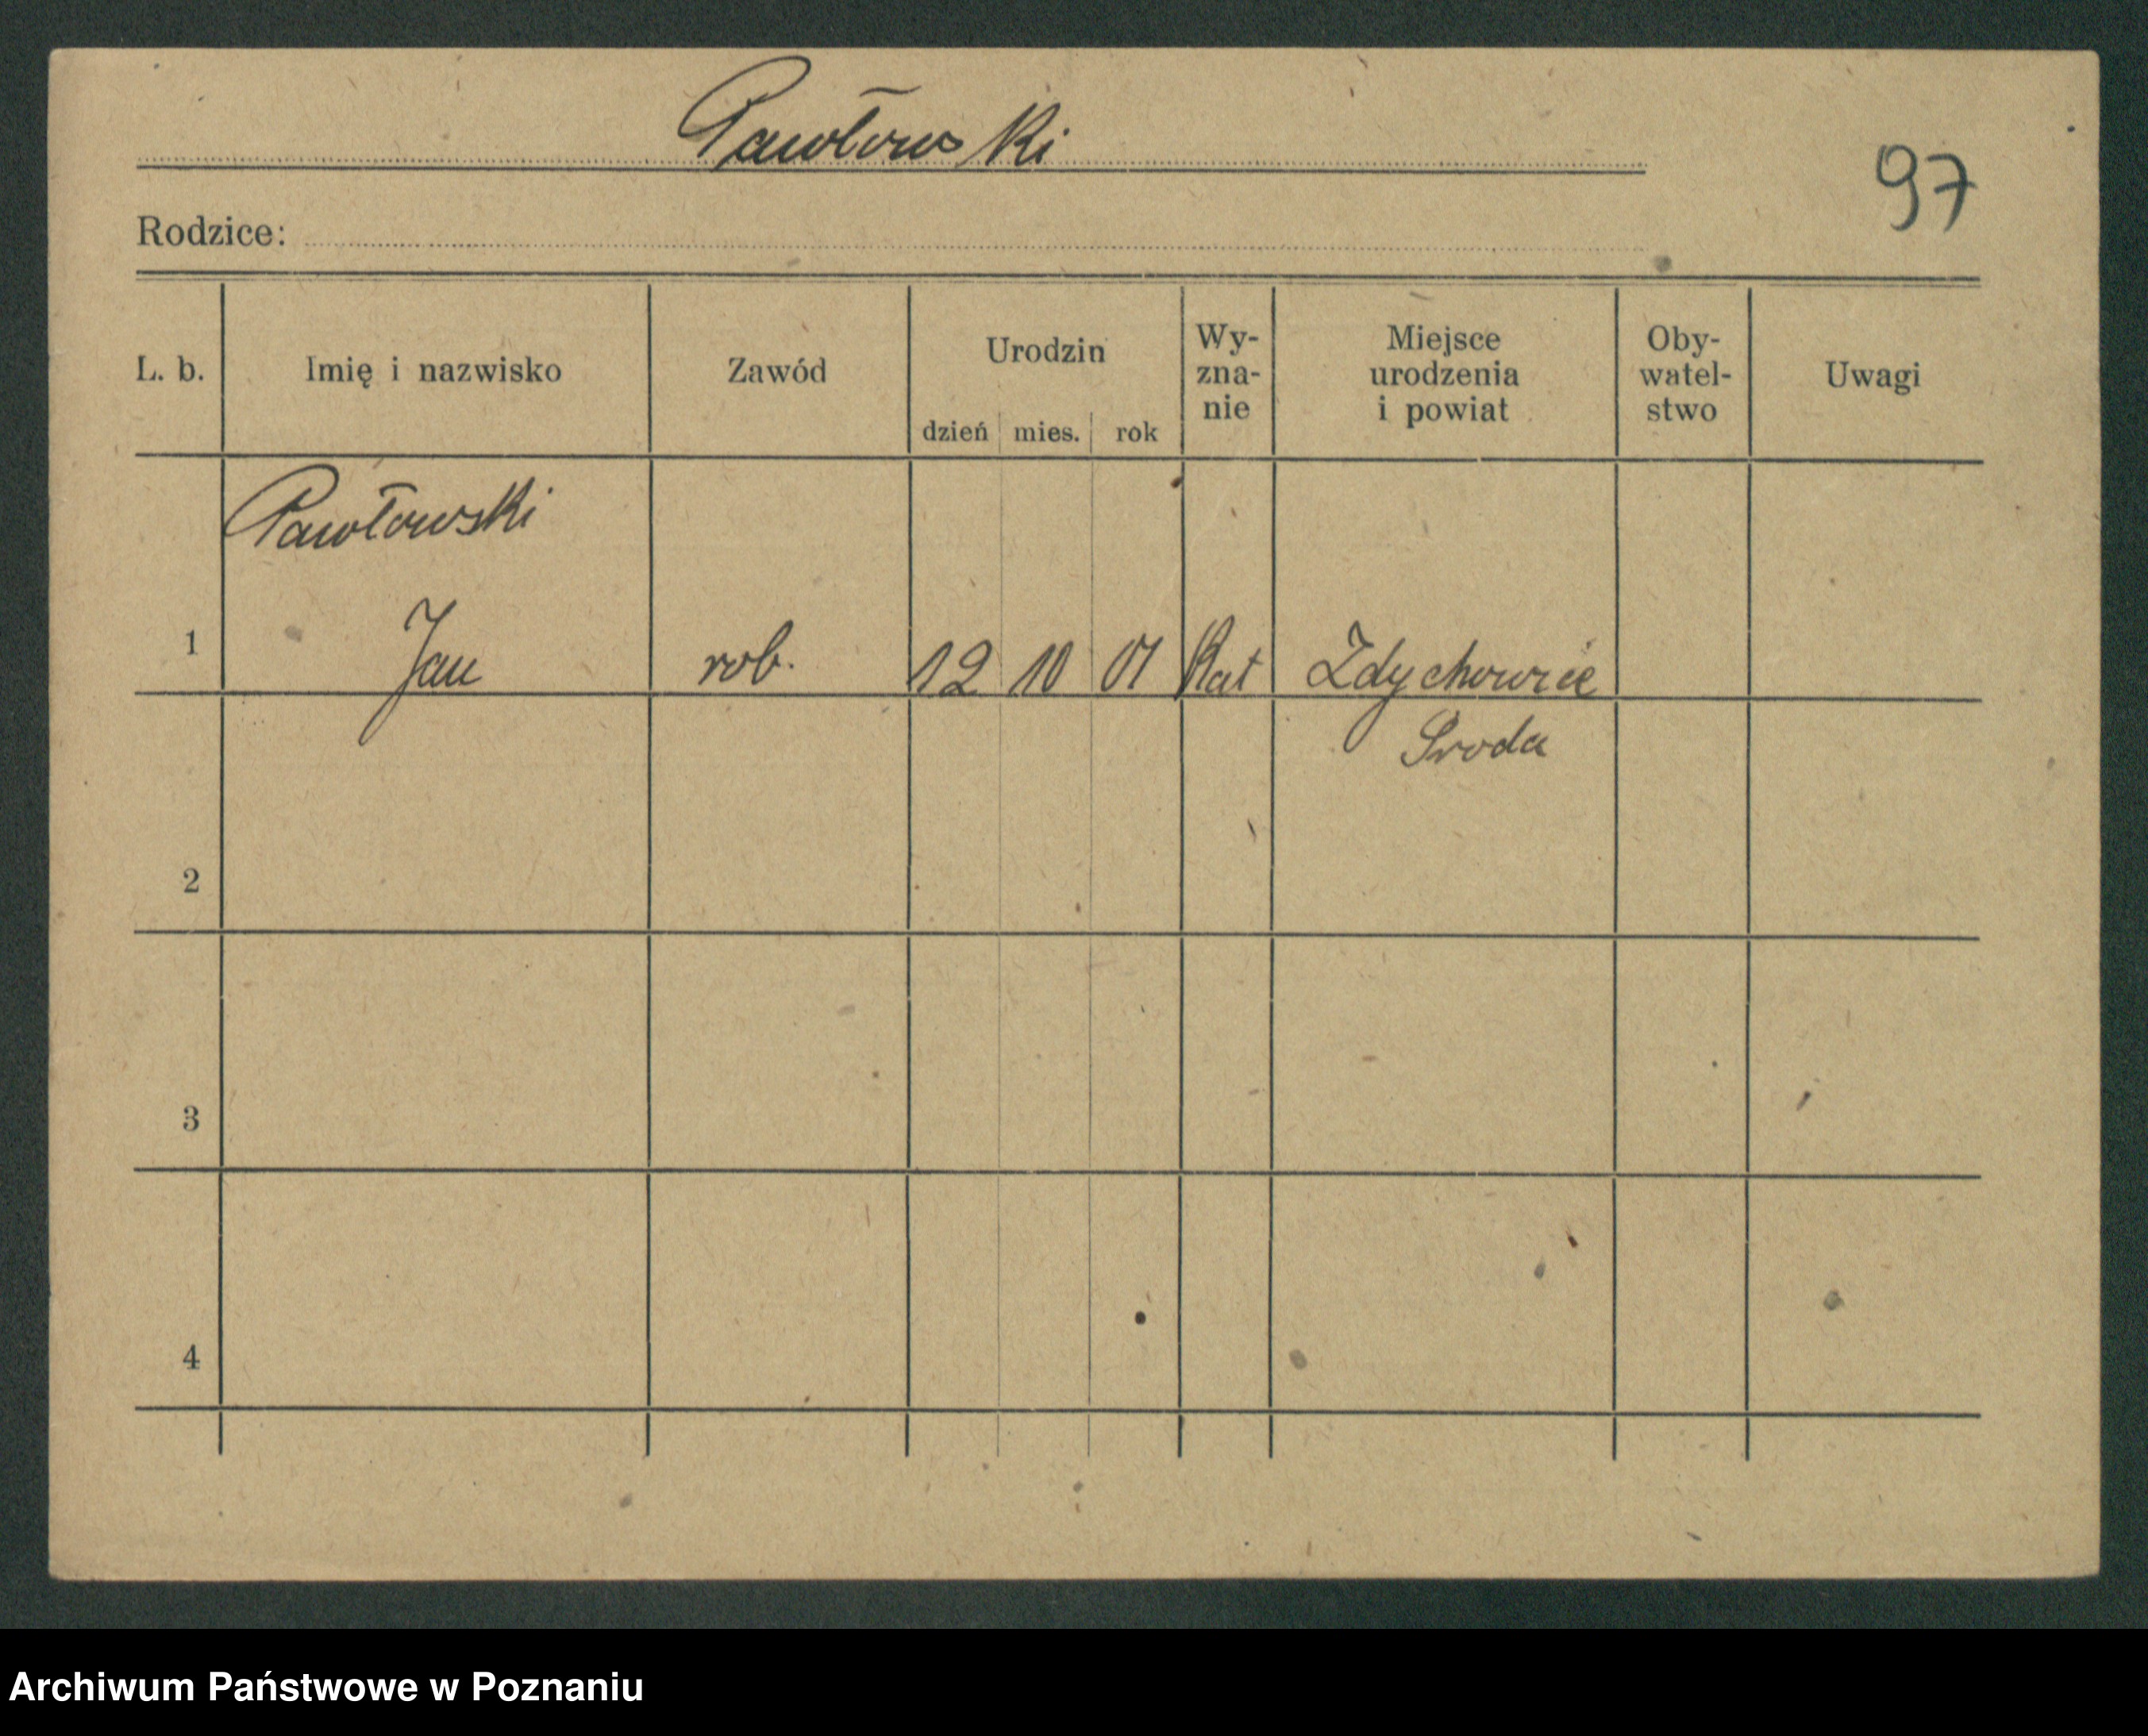 Pawłowski
97
Rodzice:
L. b. Imię i nazwisko Zawód Urodzin dzień mies. rok Wy-zna-nie Miejsce urodzenia i powiat Oby-watel-stwo Uwagi
Pawłowski
1 Jan rob. 12 10 01 Kat Zdychowice
Sroda
2
3
4
Archiwum Państwowe w Poznaniu